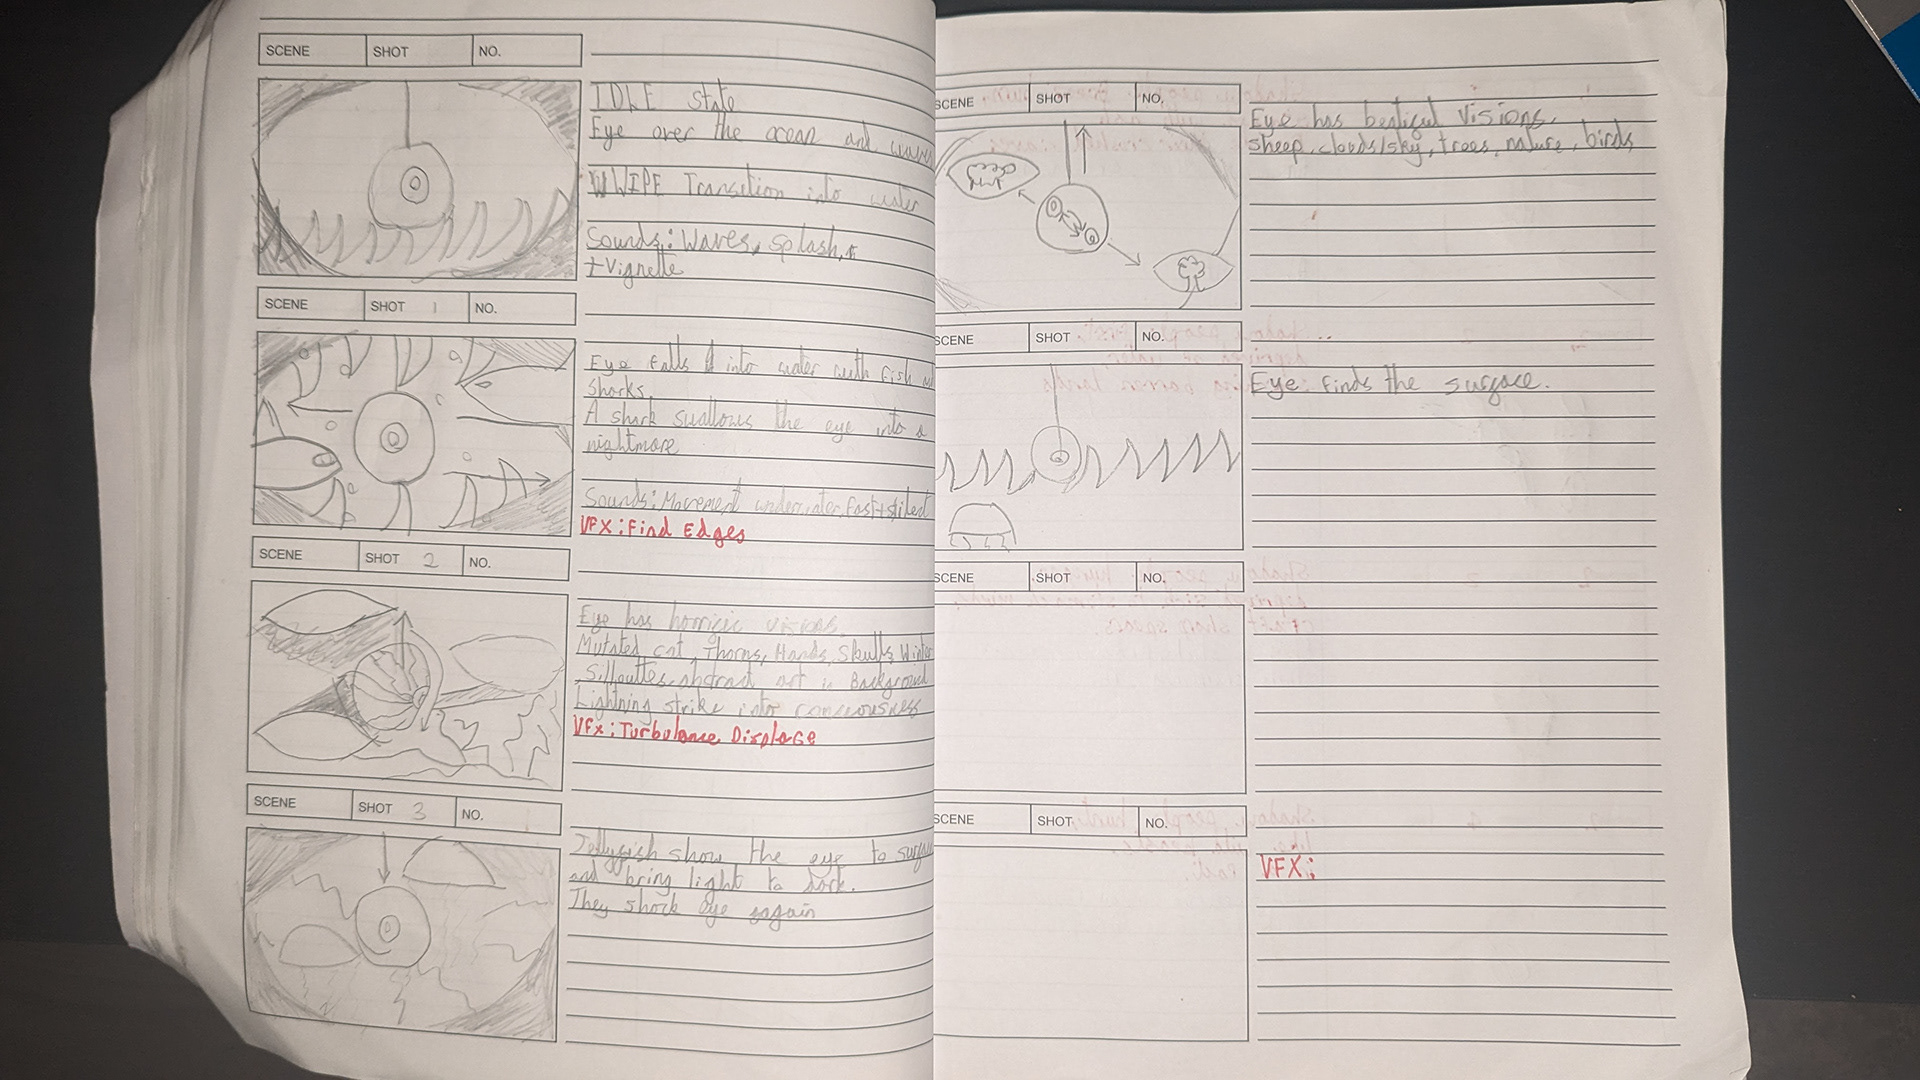 SCENE SHOT NO.
IDLE state
Eye over the ocean and waves
WIPE Transition into water
Sounds: Waves, splash,
+Vignette
SCENE SHOT 1 NO.
Eye falls into water with fish
Sharks.
A shark swallows the eye into a
nightmare
Sounds: Movement underwater, fast +
VFX: Find Edges
SCENE SHOT 2 NO.
Eye has visions.
Mutated cat, Thorns, Hands, Skulls,
Sillouttes, abstract art in Background
Lightning strike into
VFX: Turbulance Displace
SCENE SHOT 3 NO.
Jellyfish show the eye to
and bring light to dark.
They shock eye again
SCENE SHOT NO.
Eye has beatiful visions.
sheep, clouds/sky, trees, nature, birds
SCENE SHOT NO.
Eye: finds the surface.
SCENE SHOT NO.
SCENE SHOT NO.
VFX: